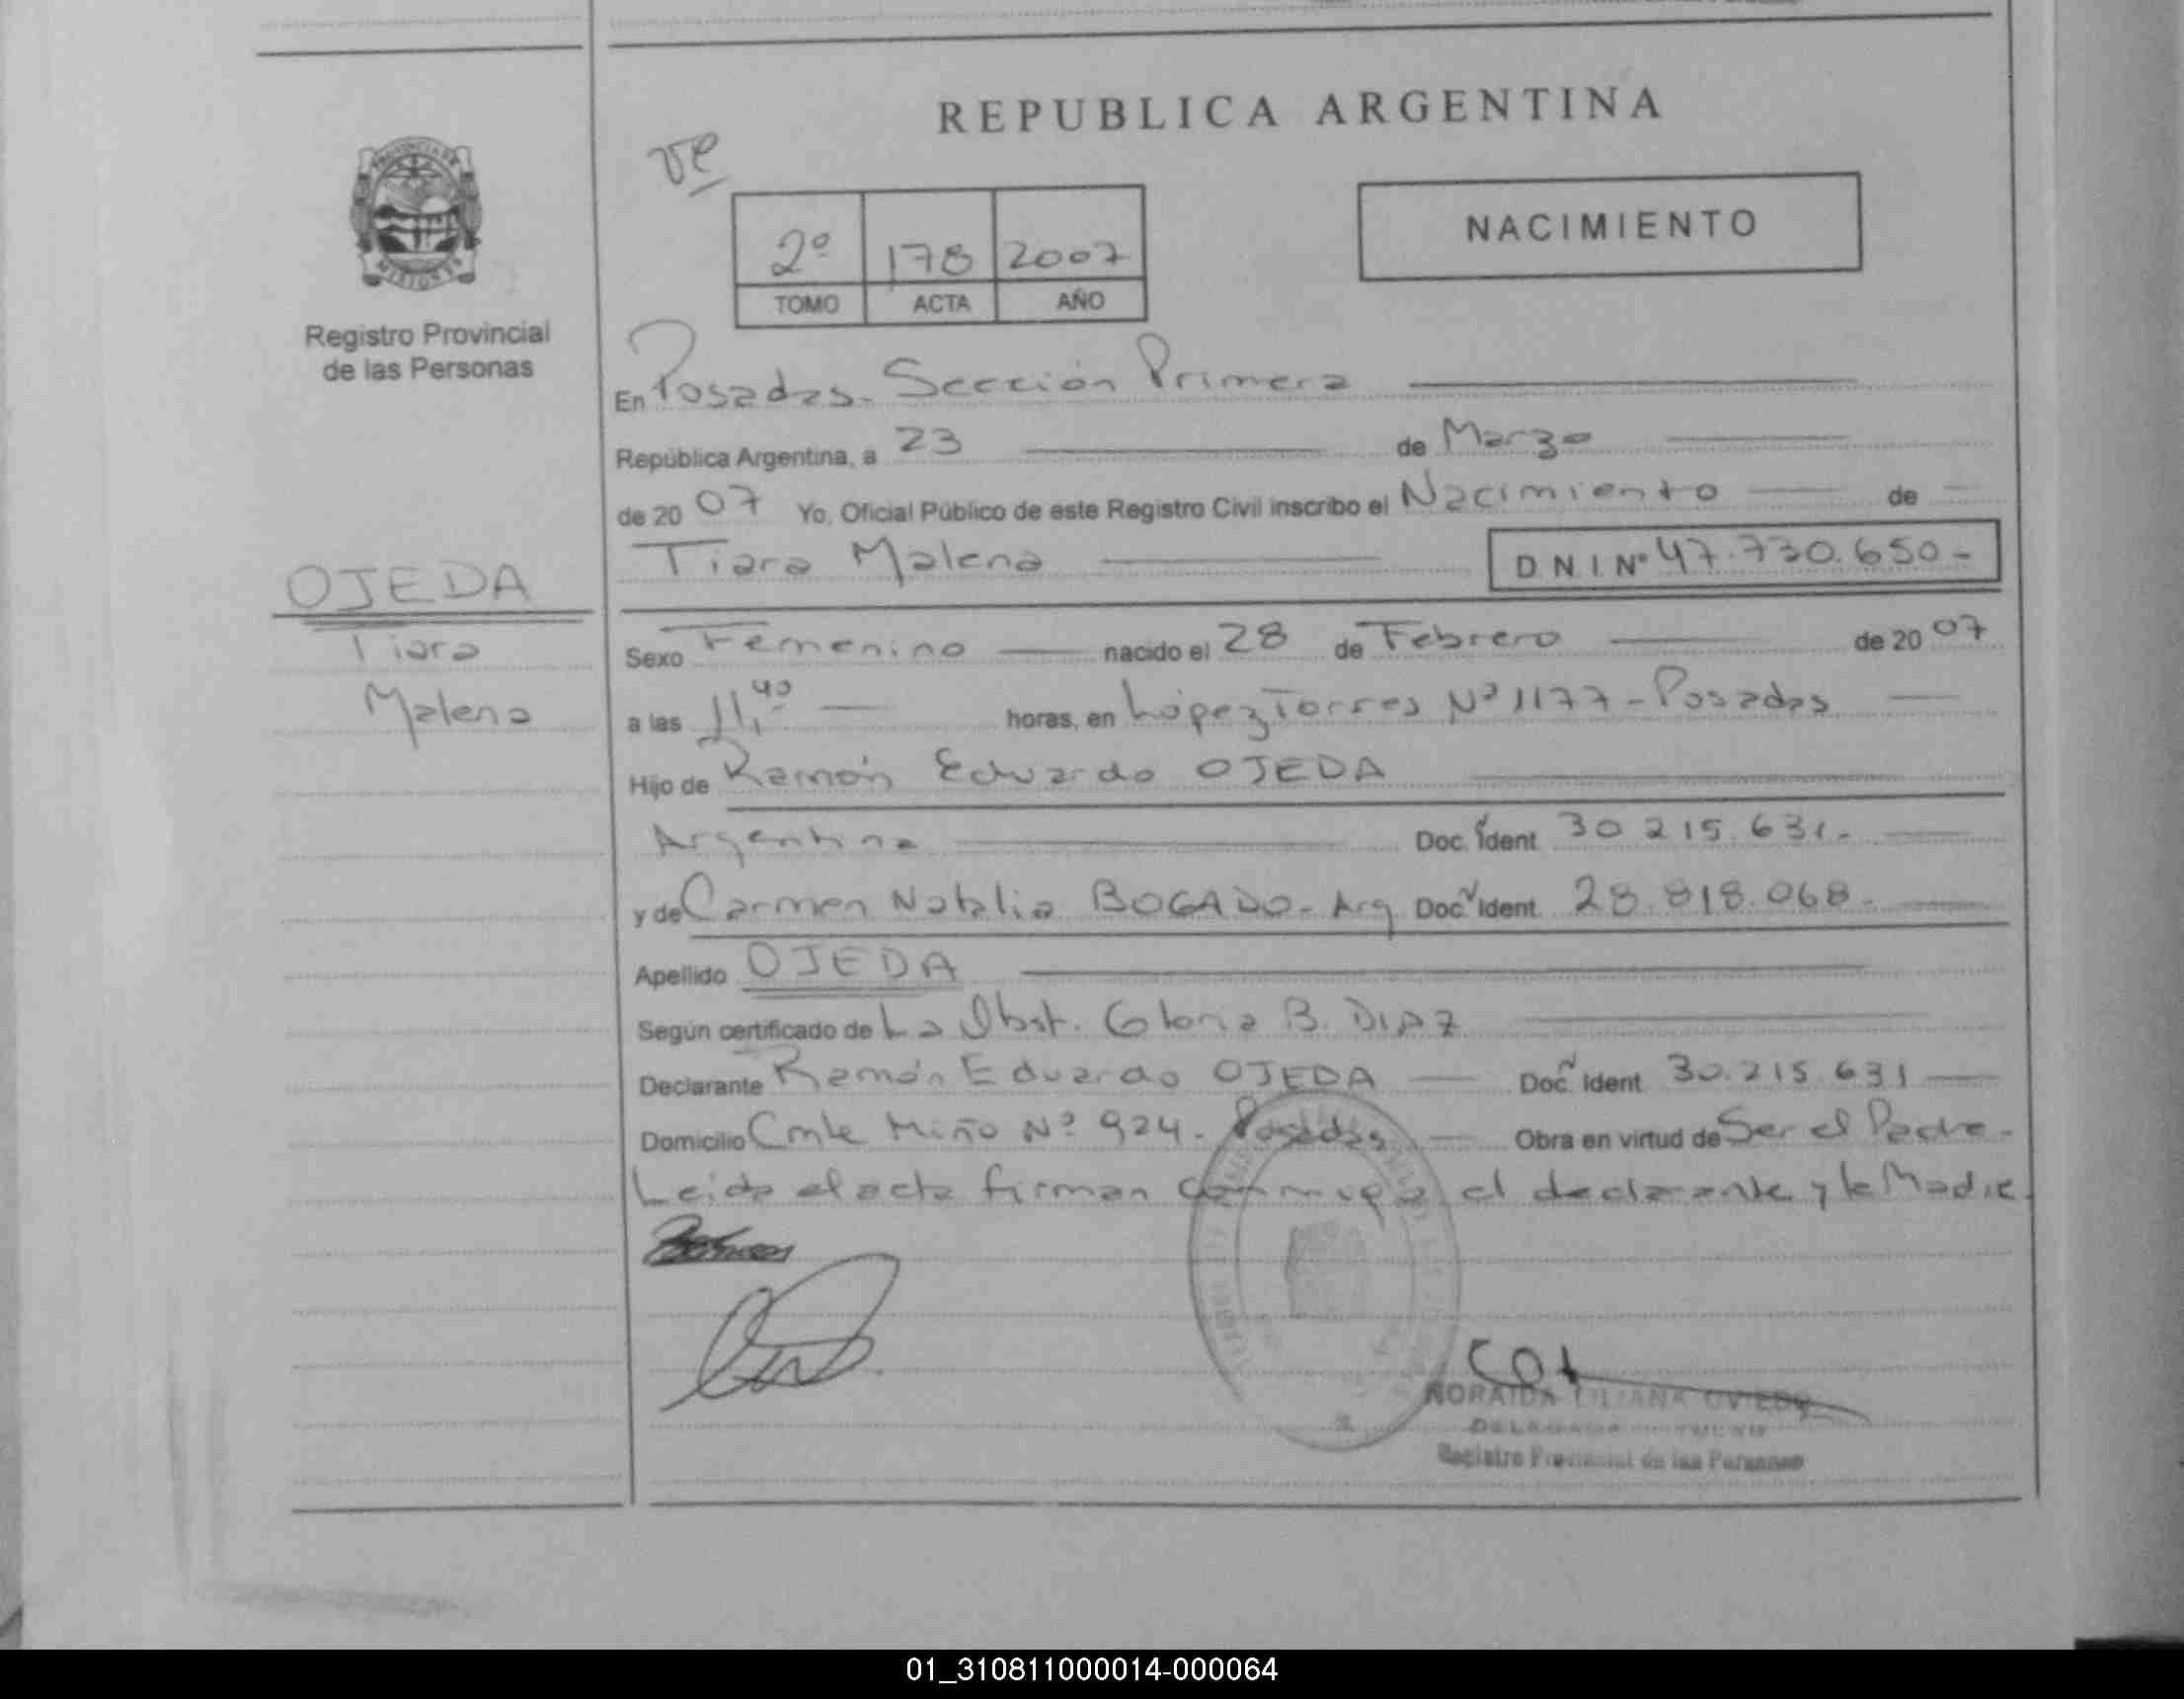 REPUBLICA ARGENTINA
NACIMIENTO
2º 178 2007
TOMO ACTA AÑO
Registro Provincial
de las Personas
En Posadas - Sección Primera
República Argentina, a 23 de Marzo
de 20 07 Yo, Oficial Público de este Registro Civil inscribo el Nacimiento de
Tiara Malena D N I Nº 47.730.650-
OJEDA
Tiara
Malena
Sexo Femenino nacido el 28 de Febrero de 20 07
a las 11,40 horas, en López Torres Nº 1177 - Posadas
Hijo de Ramón Eduardo OJEDA
Argentina Doc. Ident. 30 215.631.-
y de Carmen Natalia BOGADO - Arg Doc. Ident. 28.818.068.-
Apellido OJEDA
Según certificado de La Obst. Gloria B. DIAZ
Declarante Ramón Eduardo OJEDA Doc. Ident. 30.215.631
Domicilio Cmte Miño Nº 924 - Posadas Obra en virtud de Ser el Padre -
Leida el acta firman conmigo el declarante y la Madre
LILIANA OVIEDO
Registro Provincial de las Personas
01_310811000014-000064